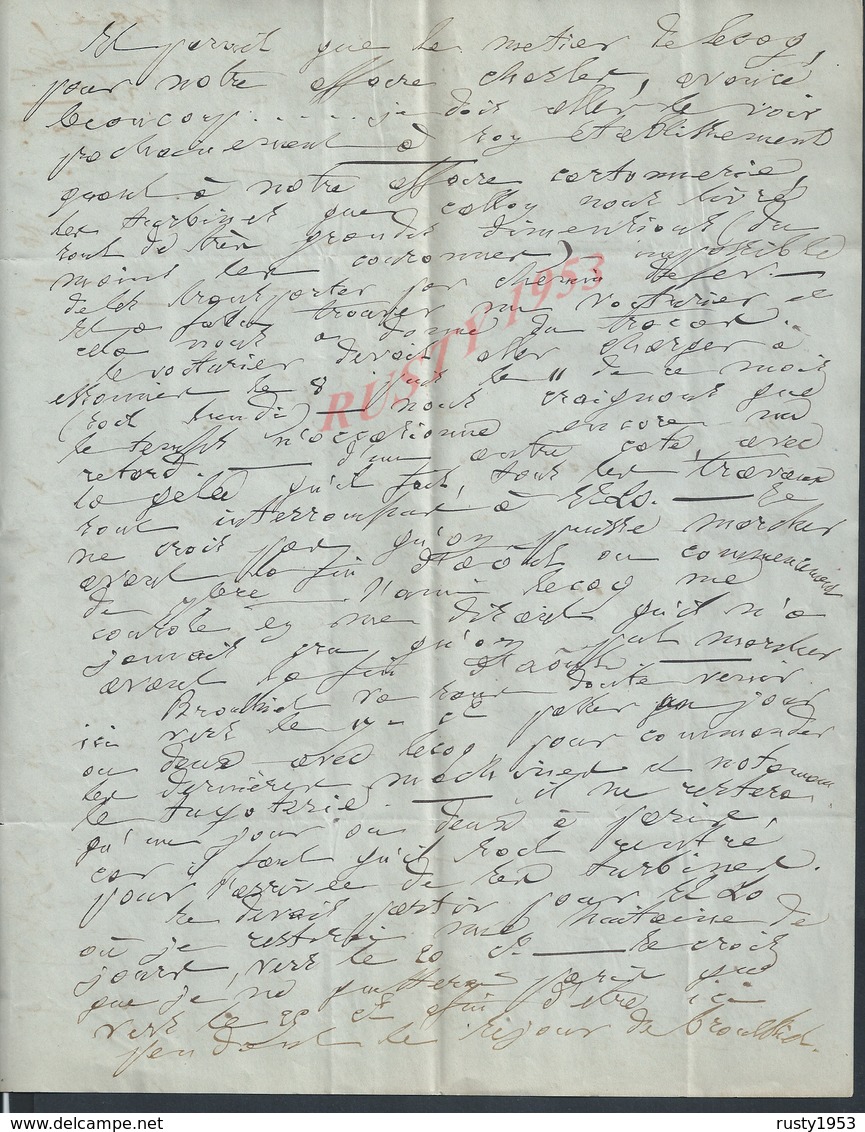 Il parait que le metier de Lecoq,
pour notre affaire Charles, avance
beaucoup ..... je dois aller le voir
prochainement à son établissement
quant à notre affaire cartonnerie,
les turbines que Callon nous livre
sont de très grandes dimensions (du
moins les couronnes) impossible
de les transporter par chemin de fer —
il a fallu trouver un voiturier et
cela nous a donné du tracas.
le voiturier devait aller charger à
Essonnes le 8 puis le 11 de ce mois
(soit lundi) — nous craignons que
le temps n'occasionne encore un
retard. — d'un autre coté, avec
la gelée qu'il fait, tous les travaux
sont interrompus à — Je
ne crois pas qu'on puisse marcher
avant la fin d'août ou commencement
de 7bre — l'ami Lecoq me
console en me disant qu'il n'a
jamais cru qu'on put marcher
avant la fin d'août —
Brouillid va sans doute venir
ici vers le ct passer un jour
ou deux avec Lecoq pour commander
les dernières machines et notamm
la tuyoterie. — il ne restera
qu'un jour ou deux à paris,
car il faut qu'il soit rentré
pour l'arrivée de les turbines.
Je devais partir pour
où je resterai une huitaine de
jours, vers le 20 ct — Je crois
que je ne quitterai paris que
vers le ct afin d'etre ici
pendant le séjour de Brouillid.
RUSTY 1953
delcampe.net
rusty1953